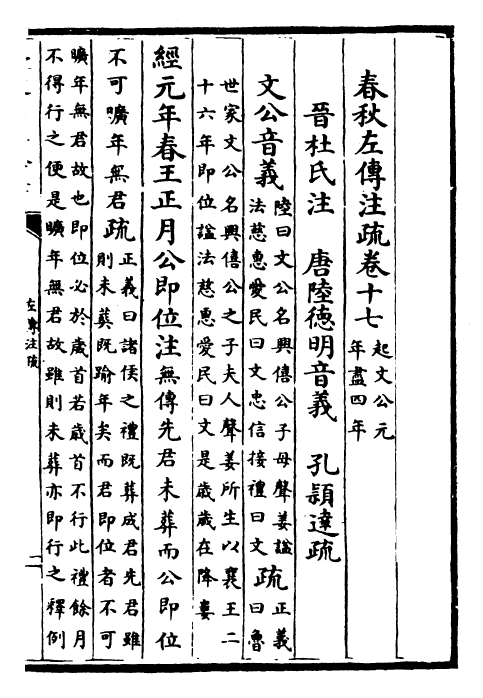 春秋左傳注疏卷十七
起文公元
年盡四年
晉杜氏注 唐陸德明音義 孔穎達疏
文公音義
陸曰文公名興僖公子母聲姜諡
法慈惠愛民曰文忠信接禮曰文
疏
正義
曰魯
世家文公名興僖公之子夫人聲姜所生以襄王二
十六年即位諡法慈惠愛民曰文是歲歲在降婁
經元年春王正月公即位注
無傳先君未葬而公即位
不可曠年無君
疏
正義曰諸侯之禮既葬成君先君雖
則未葬既踰年矣而君即位者不可
曠年無君故也即位必於歲首若歲首不行此禮餘月
不得行之便是曠年無君故雖則未葬亦即行之釋例
左專注疏